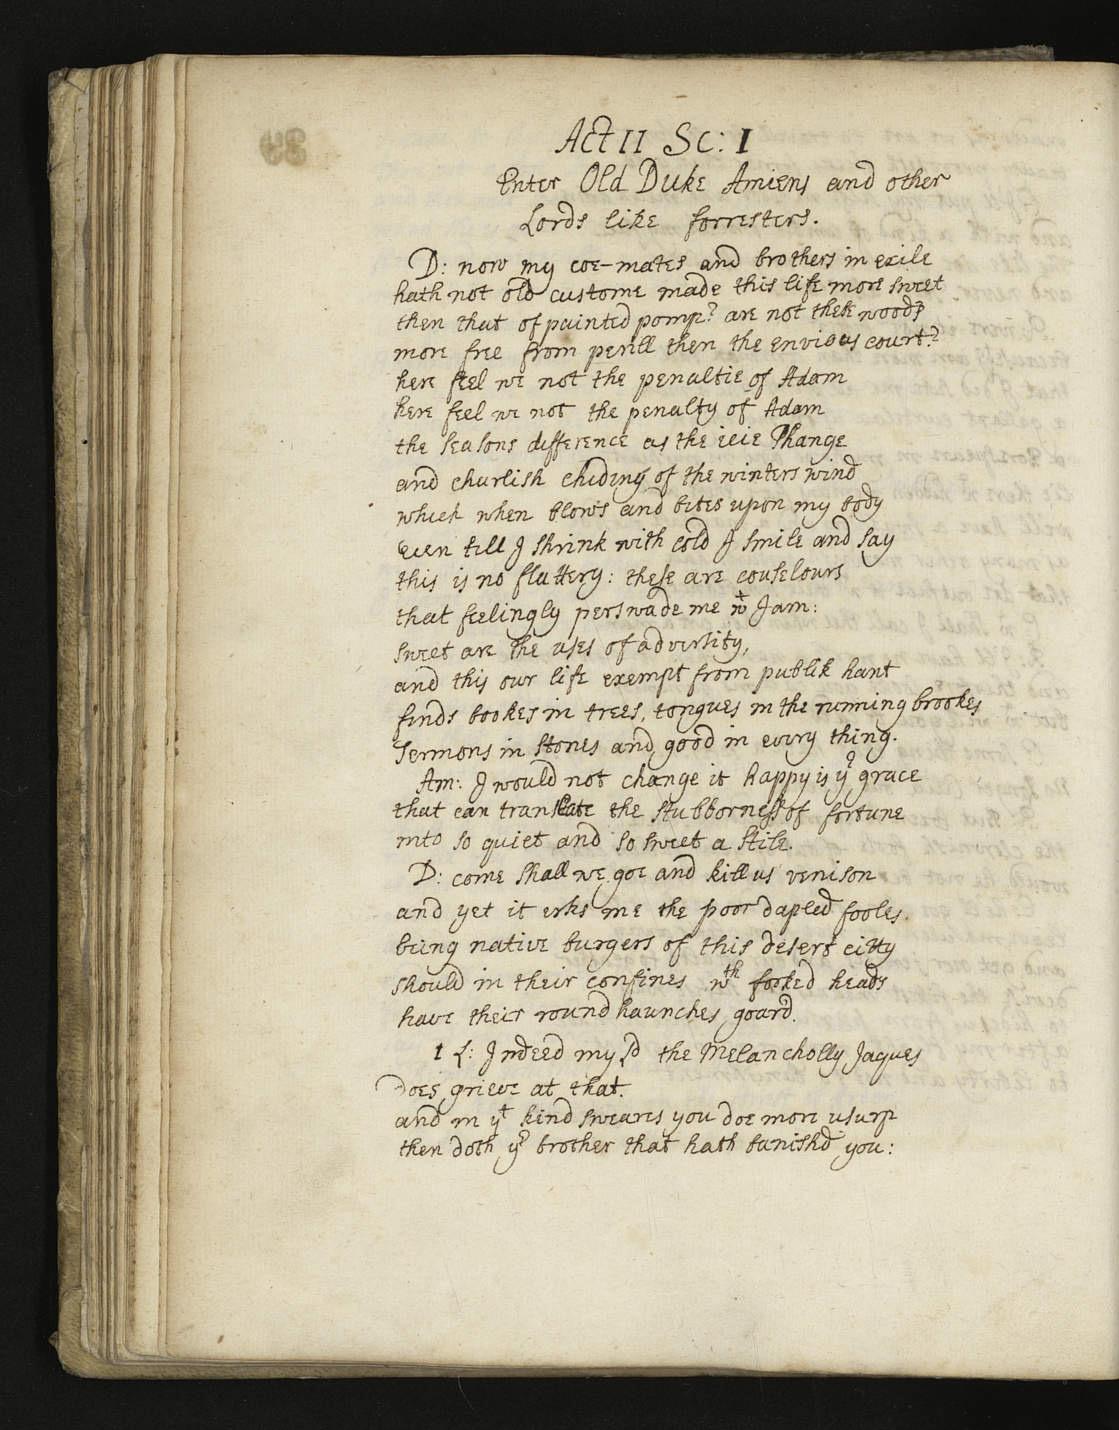 Act II Sc: I
Enter Old Duke Amiens and other
Lords like forresters.
D: now my coe-mates and brothers in exile
hath not old custome made this life more sweet
then that of painted pomp? are not these woods
more free from perill then the envious court?
here feel we not the penaltie of Adam
here feel we not the penalty of Adam
the seasons difference as the icie Phange
and churlish chiding of the winters wind
which when blows and bites upon my body
even till I shrink with cold I smile and say
this is no flattery: these are couselours
that feelingly perswade me wt I am:
sweet are the uses of adversity,
and this our life exempt from publik hant
finds bookes in trees, tongues in the running brookes
Sermons in stones and good in every thing.
Am: I would not change it happy is yr grace
that can translate the stubborness of fortune
into so quiet and so sweet a stile.
D: come shall we goe and kill us venison
and yet it erks me the poor dapled fooles
being native burgers of this desert citty
should in their confines wth forked heads
have their round haunches goard.
1 L: Indeed my Ld the Melancholly Jaques
does grieve at that.
and in yt kind sweares you doe more usurp
then doth yr brother that hath banishd you: